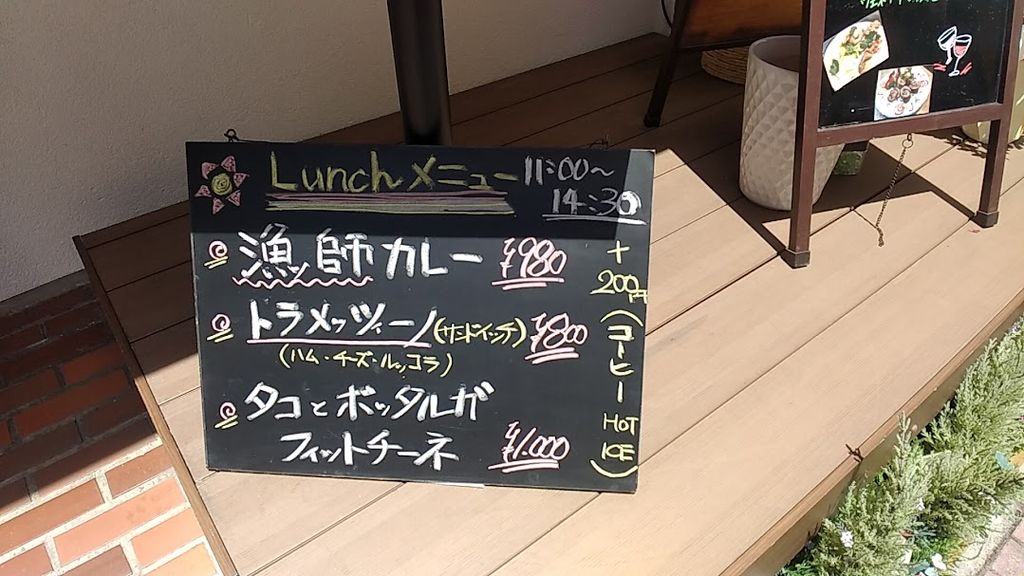 Lunchメニュー 11:00～
14:30
漁師カレー ¥980
トラメッツィーノ(サンドイッチ) ¥800
(ハム・チーズ・ルッコラ)
タコとボッタルガ
フィットチーネ ¥1.000
+
200円
(コーヒー HOT
ICE)